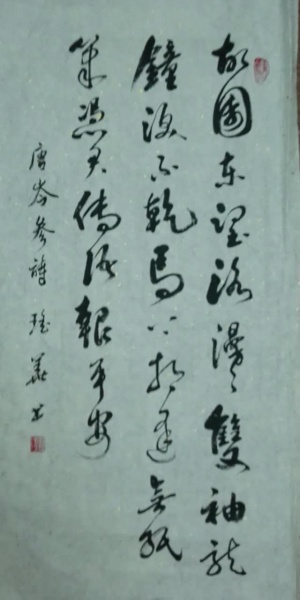 故園東望路漫漫雙袖龍
鐘淚不乾馬上相逢無紙
筆憑君傳語報平安
唐岑參詩 瑤美書